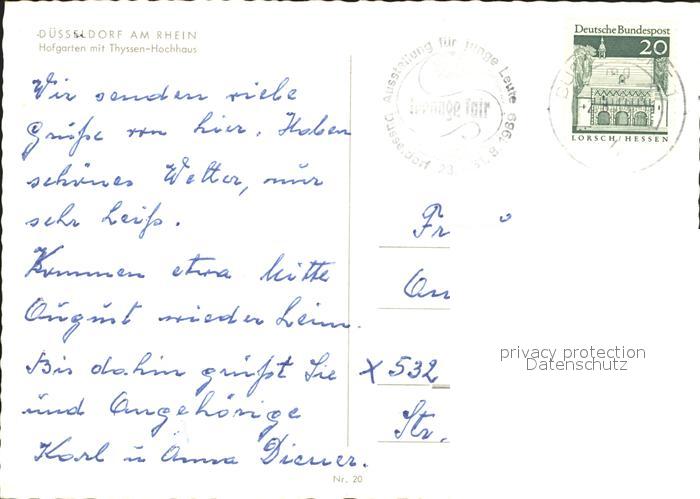 DÜSSELDORF AM RHEIN
Hofgarten mit Thyssen-Hochhaus
Wir senden viele
Grüße von hier. Haben
schönes Wetter, nur
sehr heiß.
Kommen etwa Mitte
August wieder heim.
Bis dahin grüßt Sie
und Angehörige
Karl u Anna Diener.
Ausstellung für junge Leute
teenage fair
Düsseldorf 23. 31.8.1969
Deutsche Bundespost
20
LORSCH/HESSEN
Fr
An
X 532
Str.
privacy protection
Datenschutz
Nr. 20